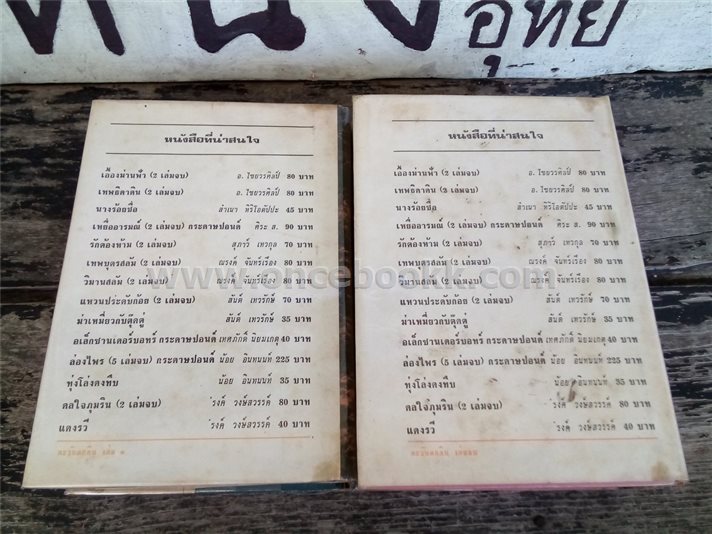 อุทัย
หนังสือที่น่าสนใจ
เอื้องม่านฟ้า (2 เล่มจบ) อ. ไชยวรศิลป์ 80 บาท
เทพธิดาดิน (2 เล่มจบ) อ. ไชยวรศิลป์ 80 บาท
นางร้อยชื่อ สำเนา หิริโอตัปปะ 45 บาท
เหยื่ออารมณ์ (2 เล่มจบ) กระดาษปอนด์ ศิระ ส. 90 บาท
รักต้องห้าม (2 เล่มจบ) สุภาว์ เทวกุล 70 บาท
เทพบุตรสลัม (2 เล่มจบ) ณรงค์ จันทร์เรือง 80 บาท
วิมานสลัม (2 เล่มจบ) ณรงค์ จันทร์เรือง 80 บาท
แหวนประดับก้อย (2 เล่มจบ) สันติ์ เทวรักษ์ 70 บาท
ม่าเหมี่ยวกับตุ๊ดตู่ สันต์ เทวรักษ์ 35 บาท
อเล็กซานเดอร์มอทร์ กระดาษปอนด์ เทศภักดิ์ นิยมเหตุ 40 บาท
ล่องไพร (5 เล่มจบ) กระดาษปอนด์ น้อย อินทนนท์ 225 บาท
ทุ่งโล่งดงทึบ น้อย อินทนนท์ 35 บาท
ดลใจภุมริน (2 เล่มจบ) รงค์ วงษ์สวรรค์ 80 บาท
แดงรวี รงค์ วงษ์สวรรค์ 40 บาท
ตะวันตกดิน เล่ม ๑
หนังสือที่น่าสนใจ
เอื้องม่านฟ้า (2 เล่มจบ) อ. ไชยวรศิลป์ 80 บาท
เทพธิดาดิน (2 เล่มจบ) อ. ไชยวรศิลป์ 80 บาท
นางร้อยชื่อ สำเนา หิริโอตัปปะ 45 บาท
เหยื่ออารมณ์ (2 เล่มจบ) กระดาษปอนด์ ศิระ ส. 90 บาท
รักต้องห้าม (2 เล่มจบ) สุภาว์ เทวกุล 70 บาท
เทพบุตรสลัม (2 เล่มจบ) ณรงค์ จันทร์เรือง 80 บาท
วิมานสลัม (2 เล่มจบ) ณรงค์ จันทร์เรือง 80 บาท
แหวนประดับก้อย (2 เล่มจบ) สันต์ เทวรักษ์ 70 บาท
ม่าเหมี่ยวกับตุ๊ดตู่ สันต์ เทวรักษ์ 35 บาท
อเล็กซานเดอร์มอทร์ กระดาษปอนด์ เทศภักดิ์ นิยมเหตุ 40 บาท
ล่องไพร (5 เล่มจบ) กระดาษปอนด์ น้อย อินทนนท์ 225 บาท
ทุ่งโล่งดงทึบ น้อย อินทนนท์ 35 บาท
ดลใจภุมริน (2 เล่มจบ) รงค์ วงษ์สวรรค์ 80 บาท
แดงรวี รงค์ วงษ์สวรรค์ 40 บาท
ตะวันตกดิน เล่มจบ